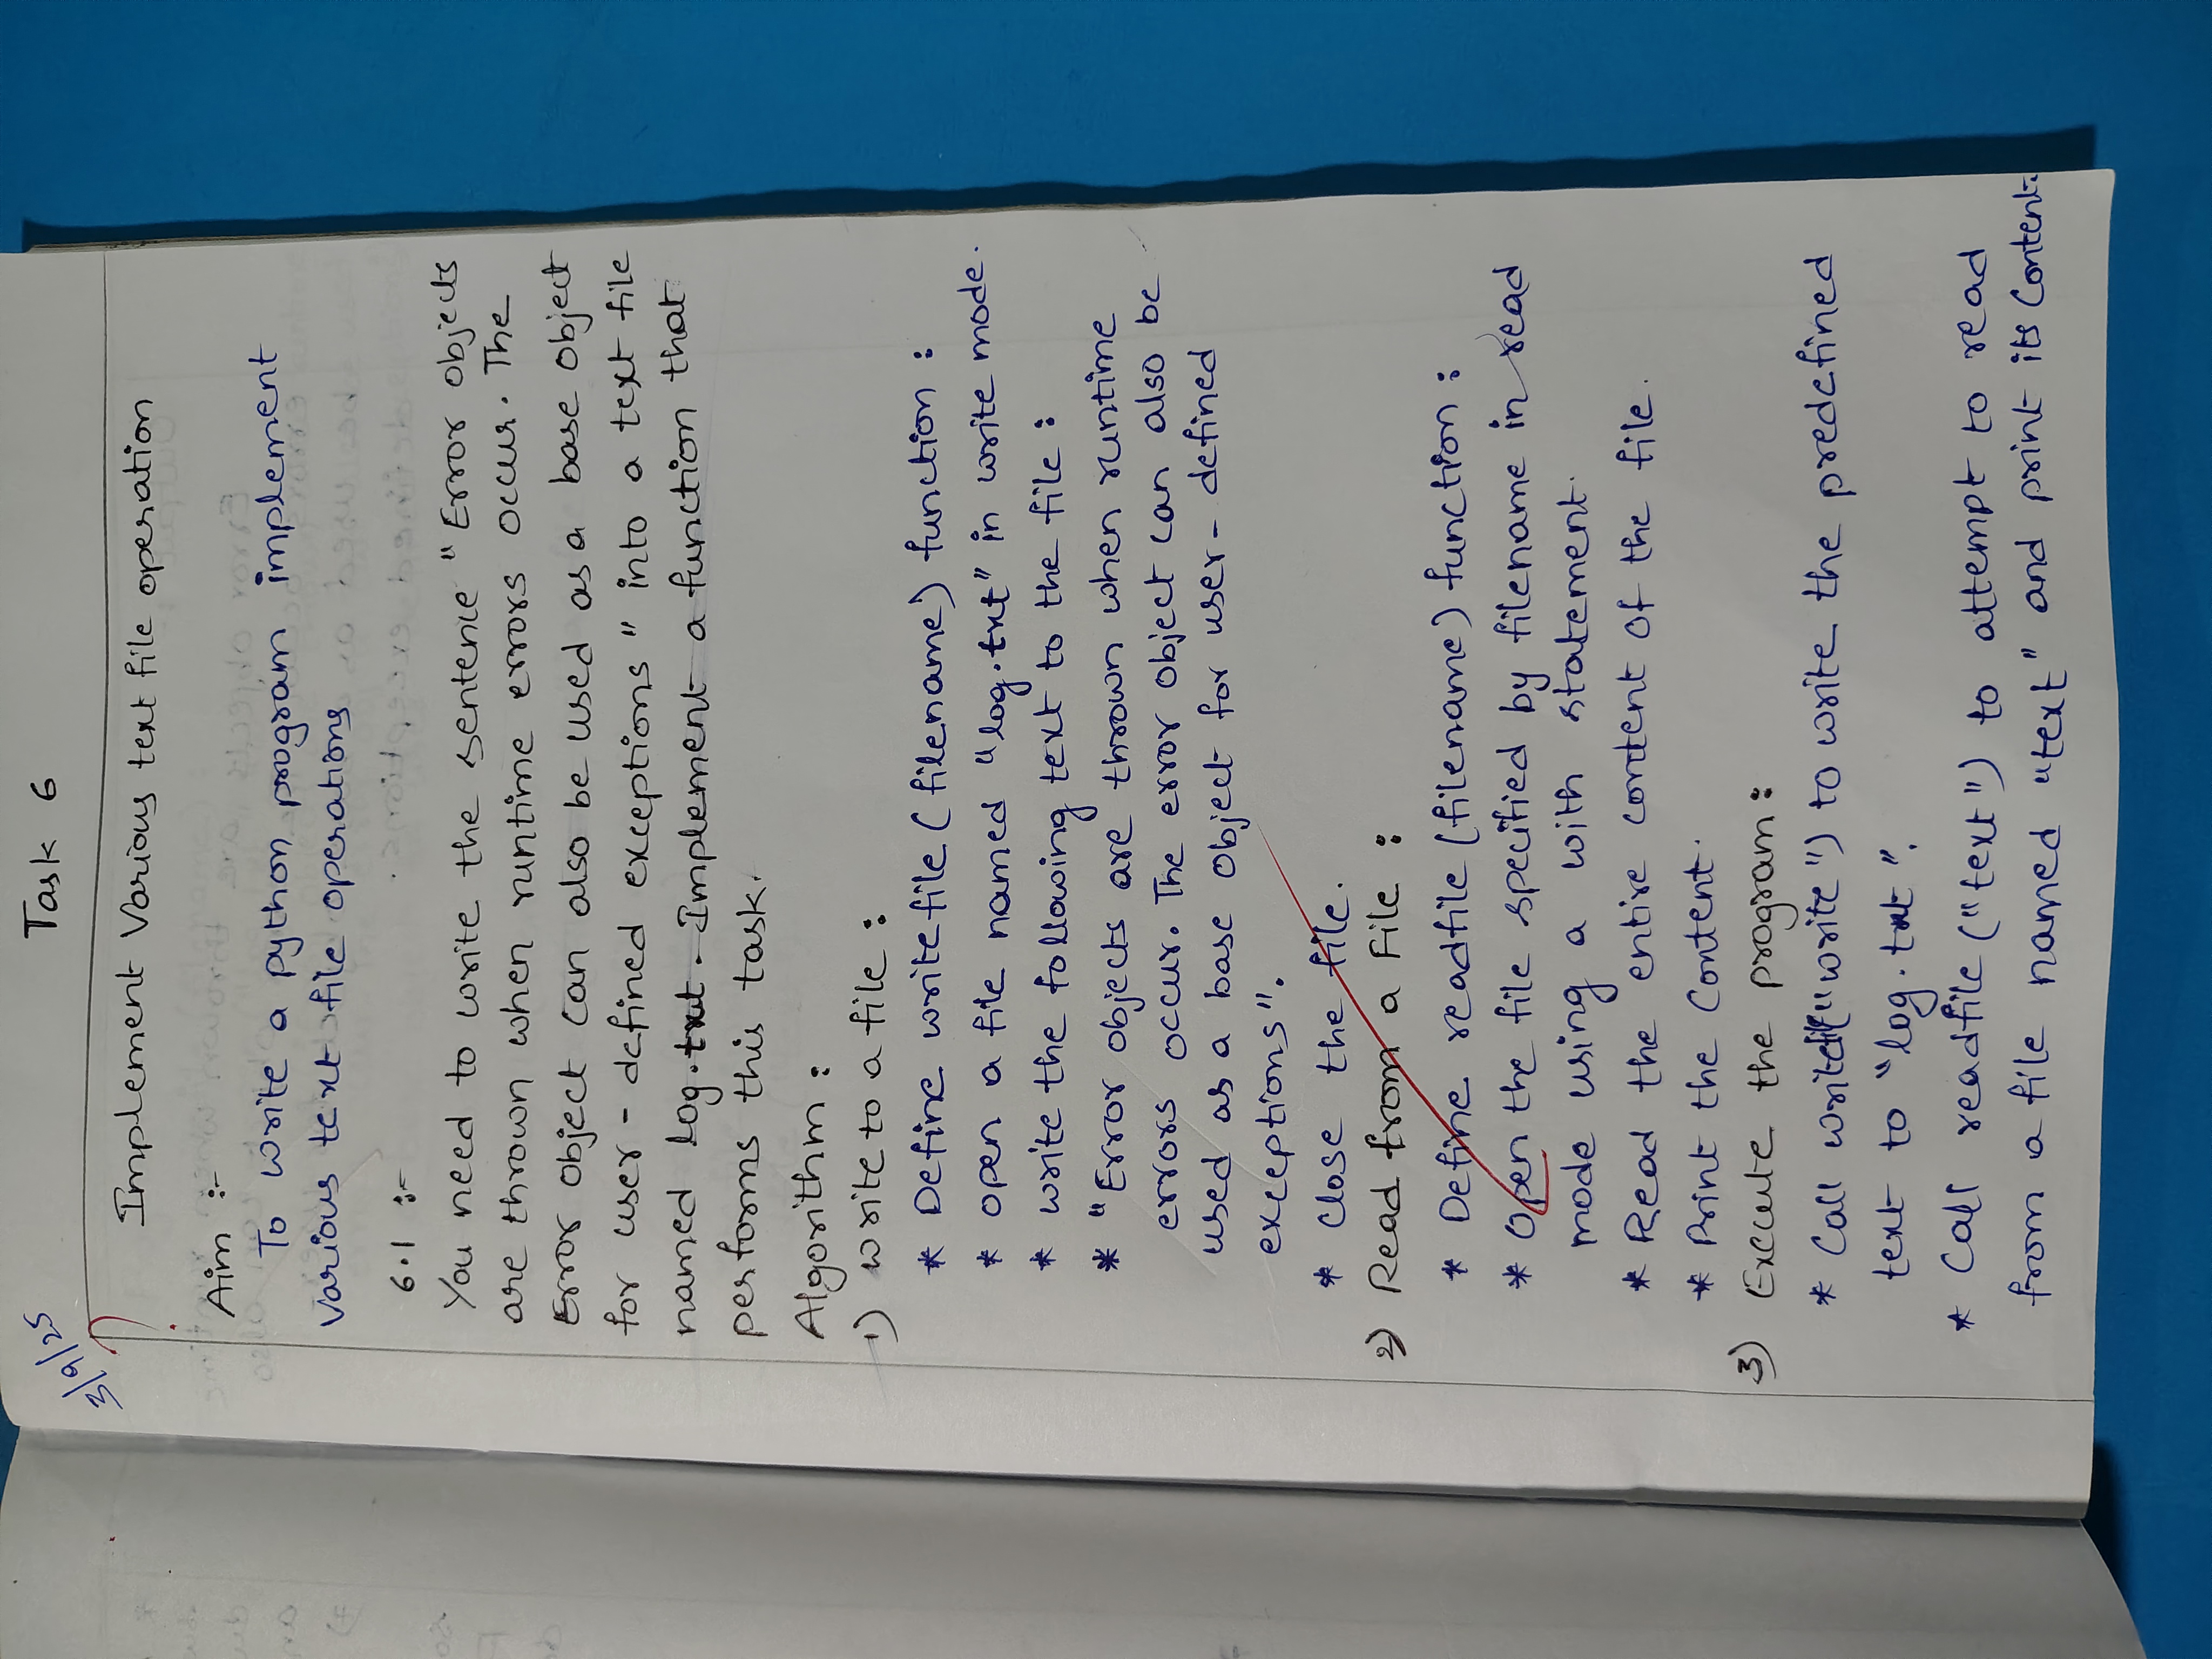 3/9/25
Task 6
Implement Various text file operation
Aim :-
To write a python program implement
various text file operations
6.1 :-
You need to write the sentence "Error objects
are thrown when runtime errors occur. The
Error object can also be used as a base object
for user - defined exceptions" into a text file
named log.txt. Implement a function that
performs this task.
Algorithm :
1) write to a file :
* Define writefile (filename) function :
* open a file named "log.txt" in write mode.
* write the following text to the file :
* "Error objects are thrown when runtime
errors occur. The error object can also be
used as a base object for user - defined
exceptions".
* Close the file.
2) Read from a File :
* Define readfile (filename) function :
* Open the file specified by filename in read
mode using a with statement.
* Read the entire content of the file.
* Print the Content.
3) Execute the program :
* Call ("write") to write the predefined
text to "log.txt".
* Call readfile ("text") to attempt to read
from a file named "text" and print its Content.